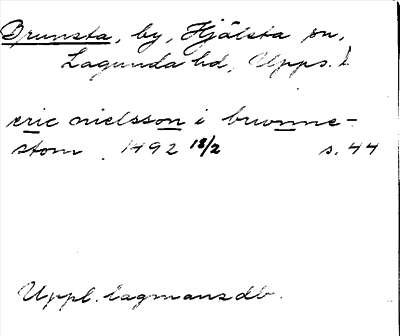 Brunsta, by, Hjälsta sn,
Lagunda hd, Upps. l
eric nielsson i brunne-
stom 1492 18/2 s. 44
Uppl. lagmansdb.